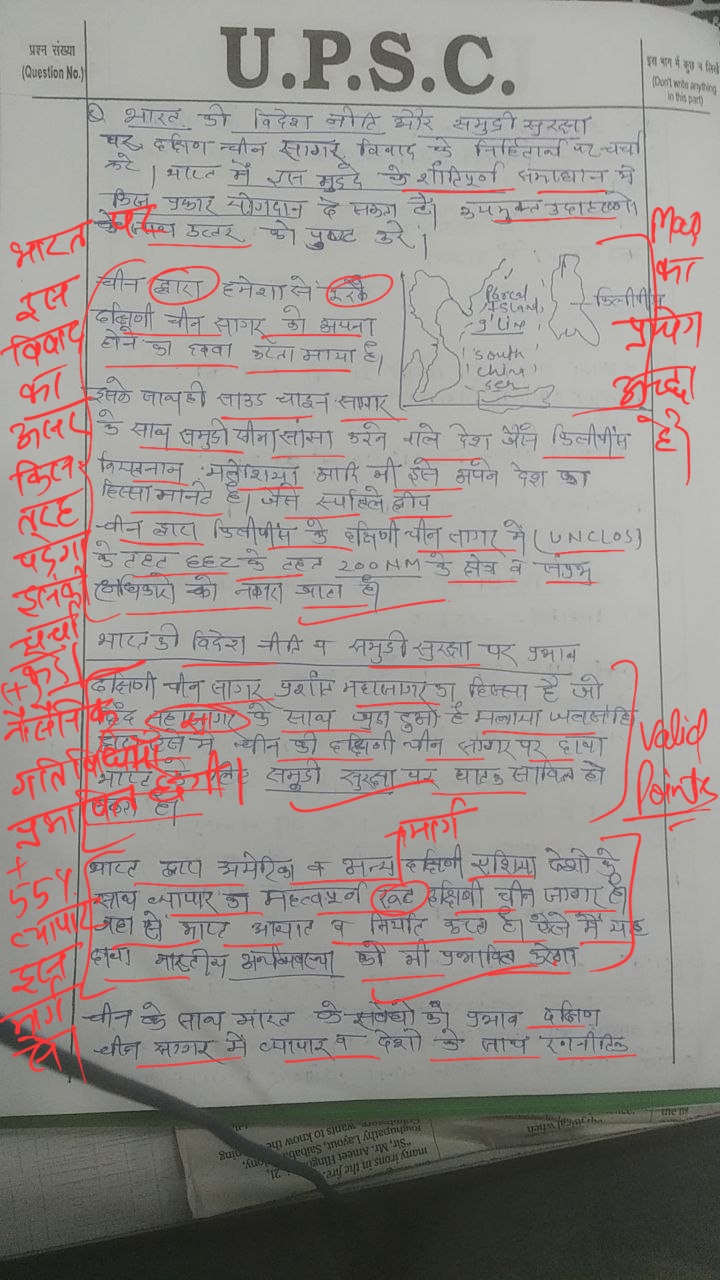 प्रश्न संख्या
(Question No.)
U.P.S.C.
इस भाग में कुछ न लिखें
(Don't write anything
in this part)
Q भारत की विदेश नीति और समुद्री सुरक्षा
पर दक्षिण चीन सागर विवाद के निहितार्थ पर चर्चा
करे। भारत में इस मुद्दे के शांतिपूर्ण समाधान में
किस प्रकार योगदान दे सकता है। उपयुक्त उदाहरणों
के साथ उत्तर को पुष्ट करे।
चीन द्वारा हमेशा से
दक्षिणी चीन सागर को अपना
होने का दावा करता आया है।
इसके साथ ही साउथ चाइना सागर
के साथ समुद्री सीमा सांझा करने वाले देश जैसे फिलीपींस
वियतनाम मलेशिया आदि भी इसे अपने देश का
हिस्सा मानते है। जैसे स्प्रेटले द्वीप
चीन द्वारा फिलीपींस के दक्षिणी चीन सागर में (UNCLOS)
के तहत EEZ के तहत 200 NM के क्षेत्र व संप्रभु
अधिकारो को नकारा जाता है।
Paracel
Island
9'Line
South
China
Sea
फिलीपींस
भारत की विदेश नीति व समुद्री सुरक्षा पर प्रभाव
दक्षिणी चीन सागर प्रशांत महासागर का हिस्सा है जो
हिंद महासागर के साथ जुड़ा हुआ है मलक्का जलसंधि
ऐसे में चीन की दक्षिणी चीन सागर पर दावा
भारत के लिए समुद्री सुरक्षा पर घातक साबित हो
सकता है।
मार्ग
भारत द्वारा अमेरिका व अन्य दक्षिणी एशिया देशो के
साथ व्यापार का महत्वपूर्ण रूट दक्षिणी चीन सागर है।
जहा से भारत आयात व निर्यात करता है। ऐसे में यह
दावा भारतीय अर्थव्यवस्था को भी प्रभावित करेगा
चीन के साथ भारत के संबंधो की प्रभाव दक्षिण
चीन सागर में व्यापार व देशो के साथ रणनीतिक
भारत पर
इस
विवाद
का
असर
किस
तरह
पड़ेगा
इसकी
चर्चा
करें।
+
नौसैनिक
गतिविधियां
प्रभावित होंगी।
+
55%
व्यापार
इस
मार्ग
से।
Map
का
प्रयोग
अच्छा
है।
Valid
Points
many irons in the fire.
"Sir, Mr. Ameet Hing
Raghupathy Layout, Saibaba
wants to know the
when